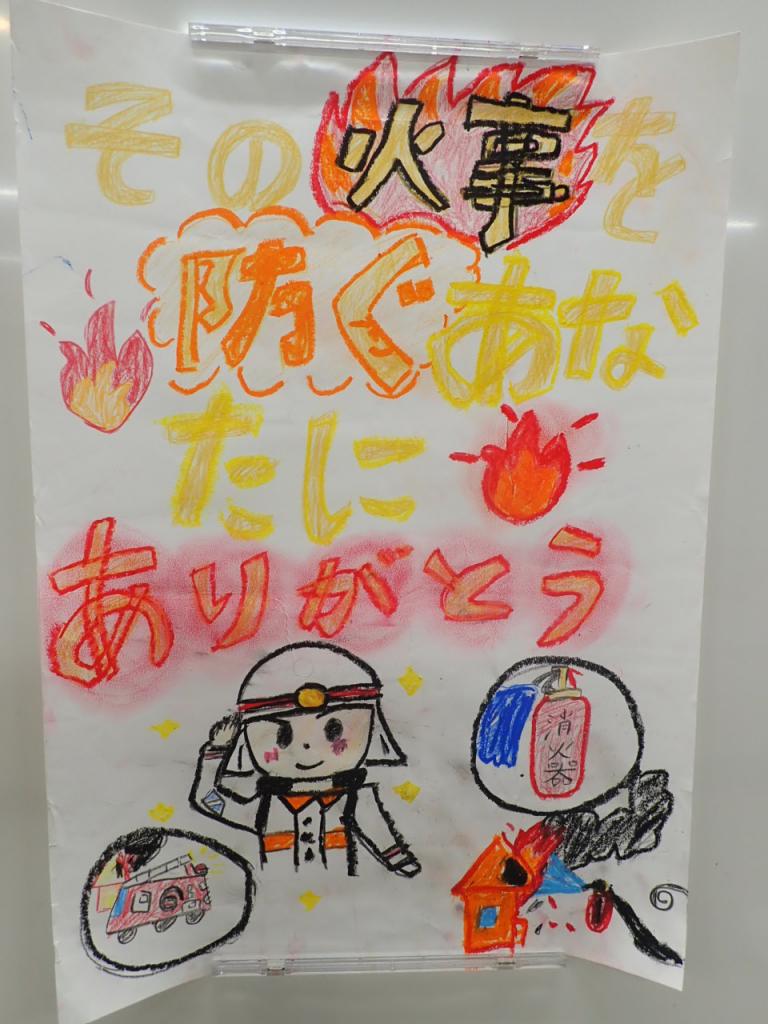 その火事を
防ぐあな
たに
ありがとう
消火器